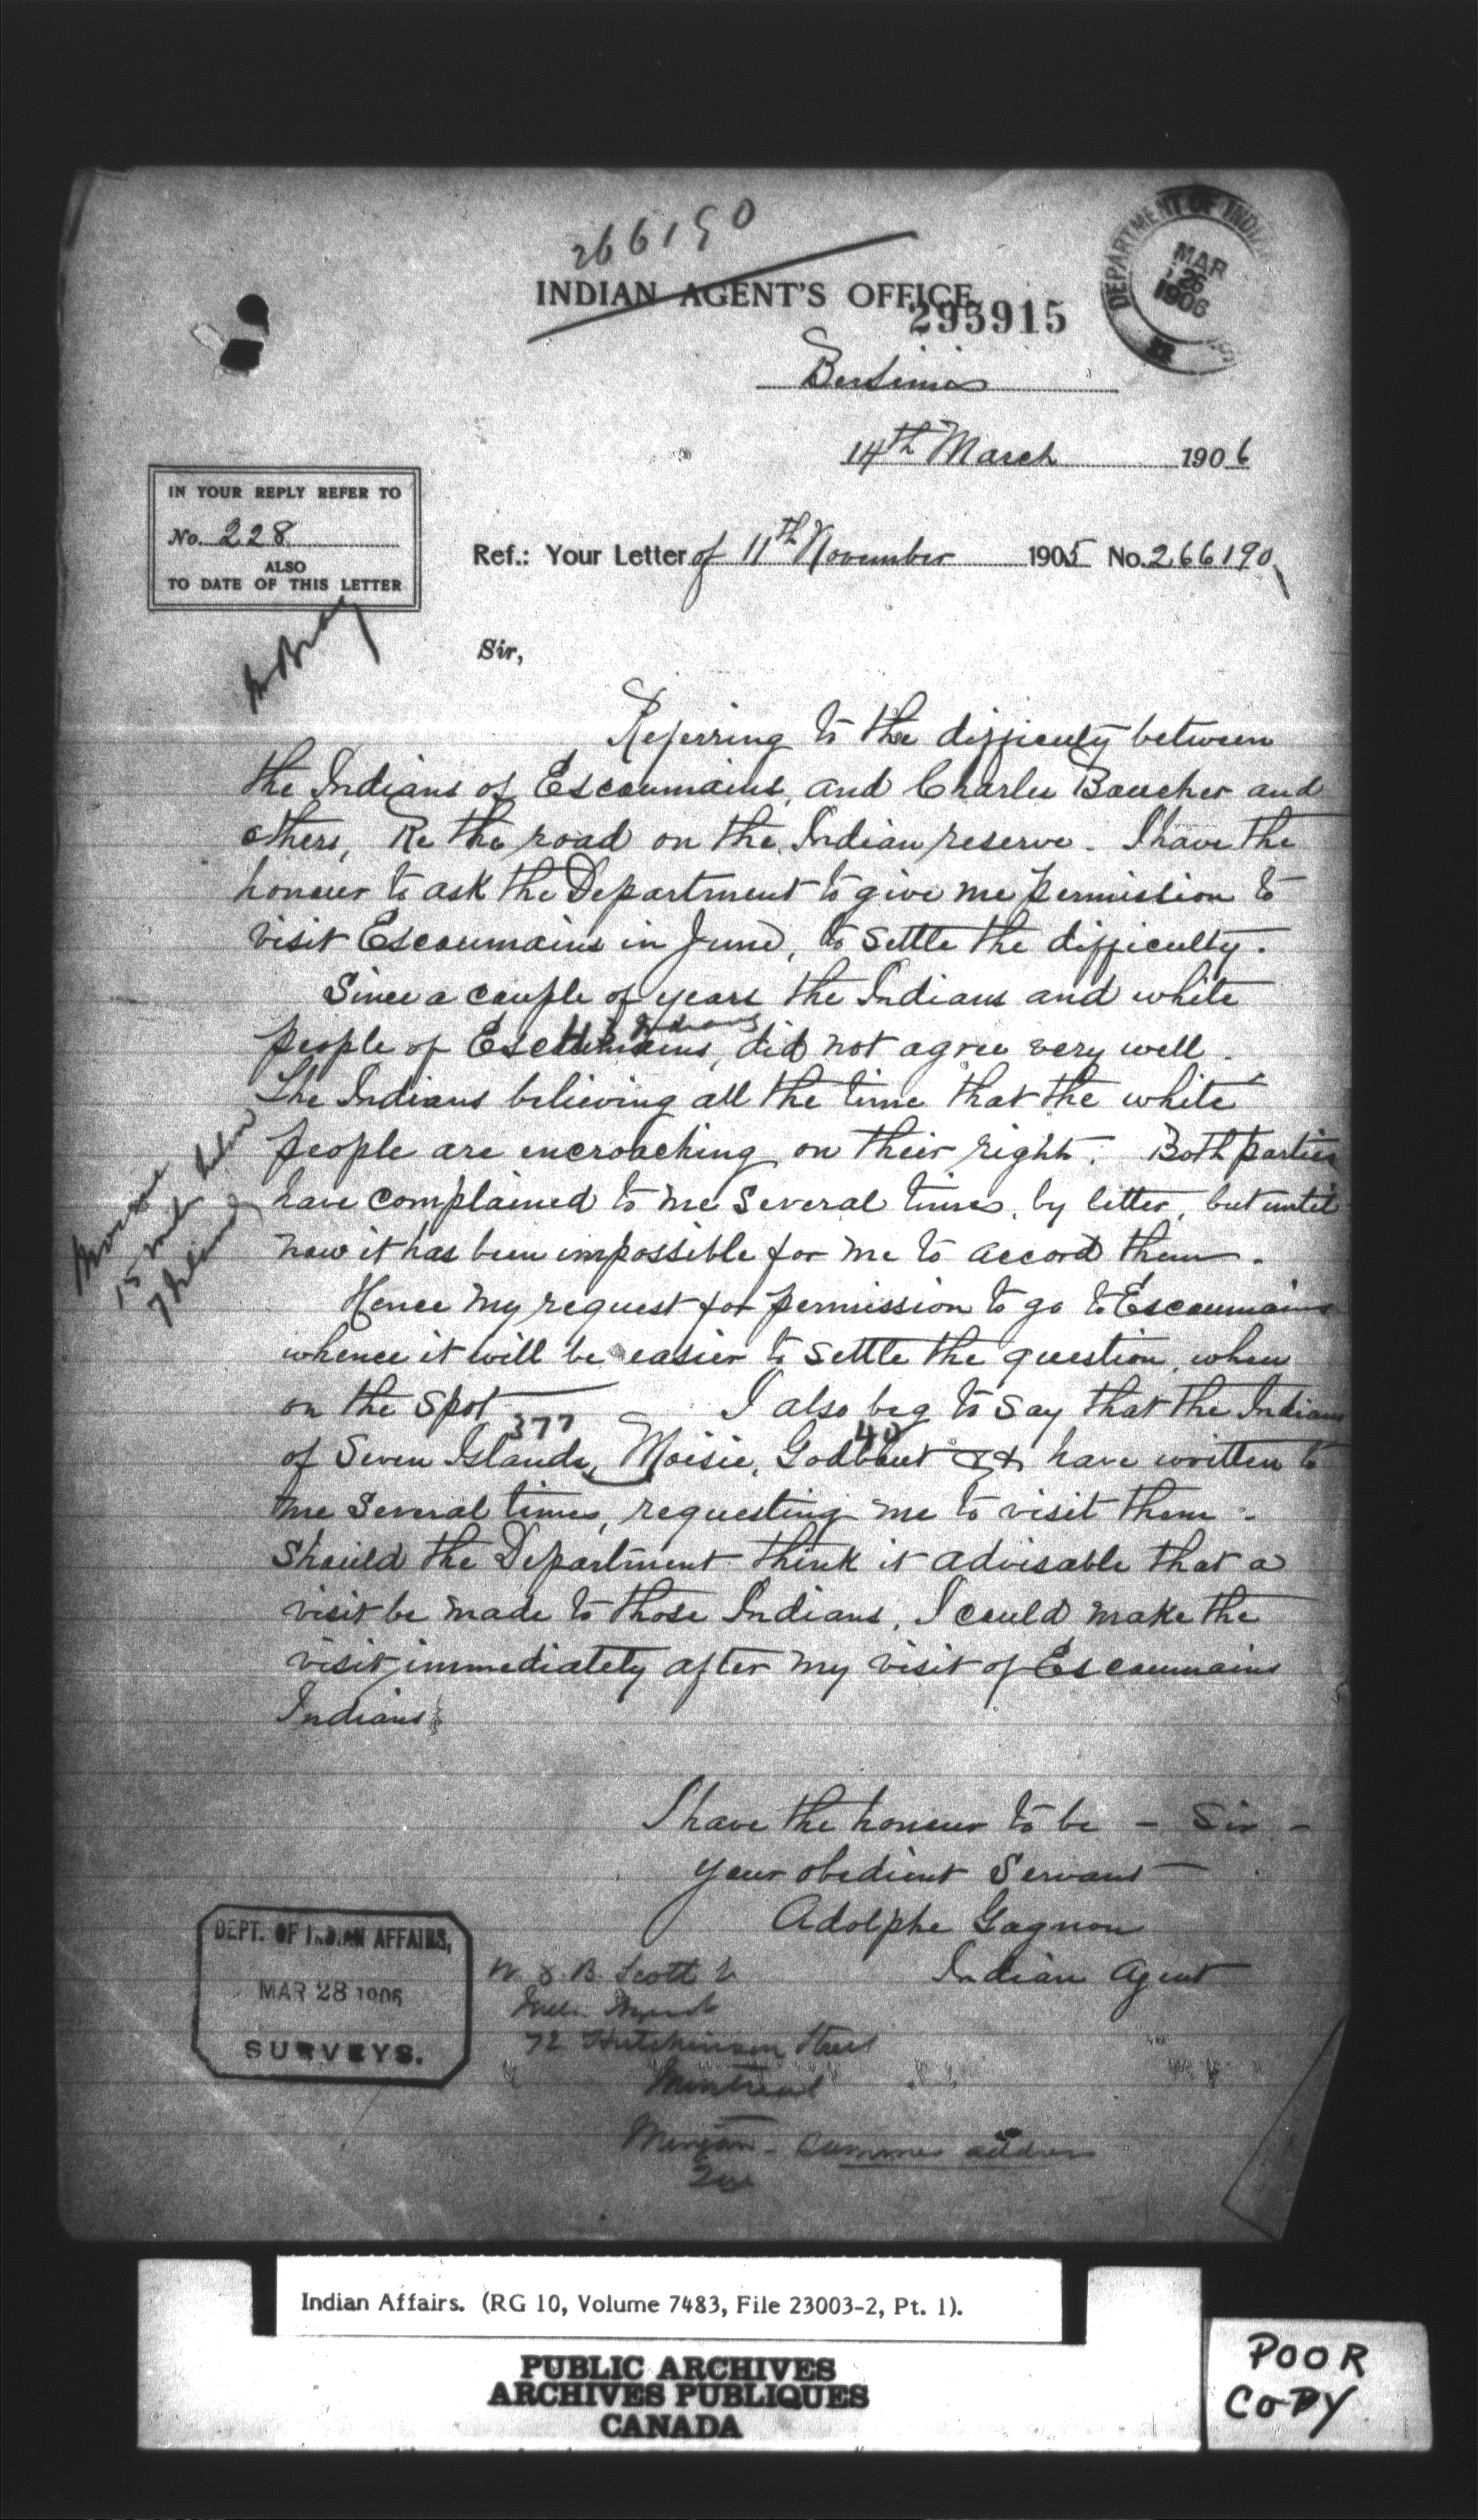 266190
INDIAN AGENT'S OFFICE
295915
DEPARTMENT OF INDIAN
MAR 26 1906
Bersimis
14th March 1906
IN YOUR REPLY REFER TO
No. 228
ALSO
TO DATE OF THIS LETTER
Ref.: Your Letter of 11th November 1905 No. 266190
Bray
Sir,
Referring to the difficulty between
the Indians of Escoumains, and Charles Boucher and
others, Re the road on the Indian reserve. I have the
honour to ask the Department to give me permission to
visit Escoumains in June, to settle the difficulty.
Since a couple of years the Indians and white
people of Escoumains, did not agree very well.
The Indians believing all the time that the white
people are encroaching on their right. Both parties
have complained to me several times, by letter, but until
now it has been impossible for me to accord them.
Hence my request for permission to go to Escoumains
whence it will be easier to settle the question, when
on the spot I also beg to say that the Indians
377 40
of Seven Islands, Moisie, Godbout && have written to
me several times, requesting me to visit them.
Should the Department think it advisable that a
visit be made to those Indians, I could make the
visit immediately after my visit of Escoumains
Indians
Moisie
15 miles below
7 Islands
I have the honour to be - Sir -
your obedient Servant
Adolphe Gagnon
Indian Agent
DEPT. OF INDIAN AFFAIRS,
MAR 28 1906
SURVEYS.
Scott
72 Hutchison Street
Montreal
Mingan - Summer address
Que
Indian Affairs. (RG 10, Volume 7483, File 23003-2, Pt. 1).
PUBLIC ARCHIVES
ARCHIVES PUBLIQUES
CANADA
POOR
COPY